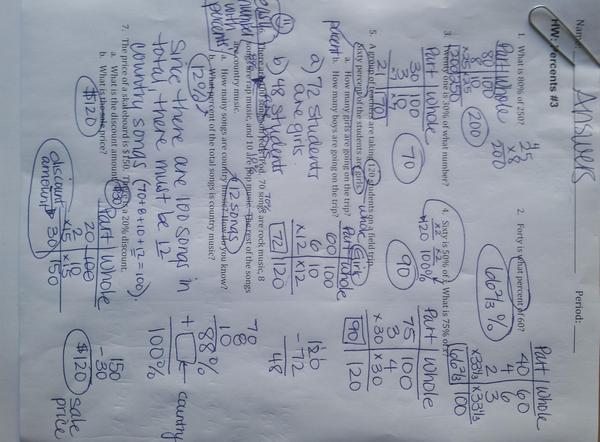 Name: Answers
Period:
HW: Percents #3
1. What is 80% of 250?
Part Whole
80 100
200 250
25
× 8
200
200
2. Forty is what percent of 60?
66⅔ %
Part Whole
40 60
4 6
2 3
×33⅓ ×33⅓
66⅔ 100
3. Twenty one is 30% of what number?
Part Whole
30 100
3 10
×7 ×7
21 70
70
4. Sixty is 50% of x. What is 75% of x?
120 100%
90
Part Whole
75 100
3 4
×30 ×30
90 120
5. A group of teachers are taking 120 students on a field trip.
Sixty percent of the students are girls.
a. How many girls are going on the trip?
b. How many boys are going on the trip?
a) 72 students
are girls
b) 48 students
Girls
Part Whole
60 100
6 10
×12 ×12
72 120
120
- 72
48
70 songs are rock music, 8
and 10 are pop music. The rest of the songs
are country music.
a. How many songs are country music? How do you know?
12 songs
percent of the total songs is country music?
12%
Since there are 100 songs in
total there must be 12
country songs (70+8+10+12=100)
70
8
10
88%
+ ← country
100%
7. The price of a skateboard is $150. There is a 20% discount.
a. What is the discount amount?
b. What is the price?
$30
$120
Part Whole
20 100
2 10
×15 ×15
30 150
discount
amount
150
- 30
$120 sale
price